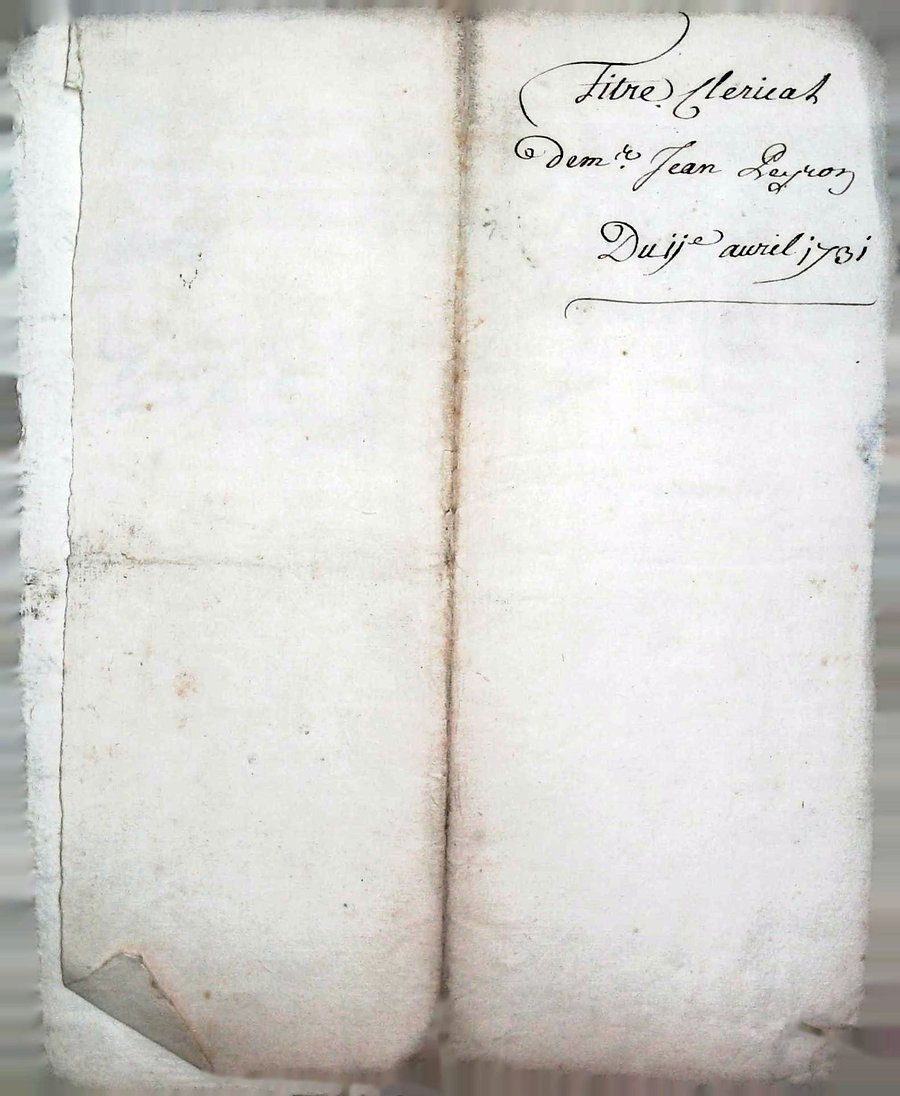 Titre Clerical
de mr. Jean Peyron
Du 11e avril 1731